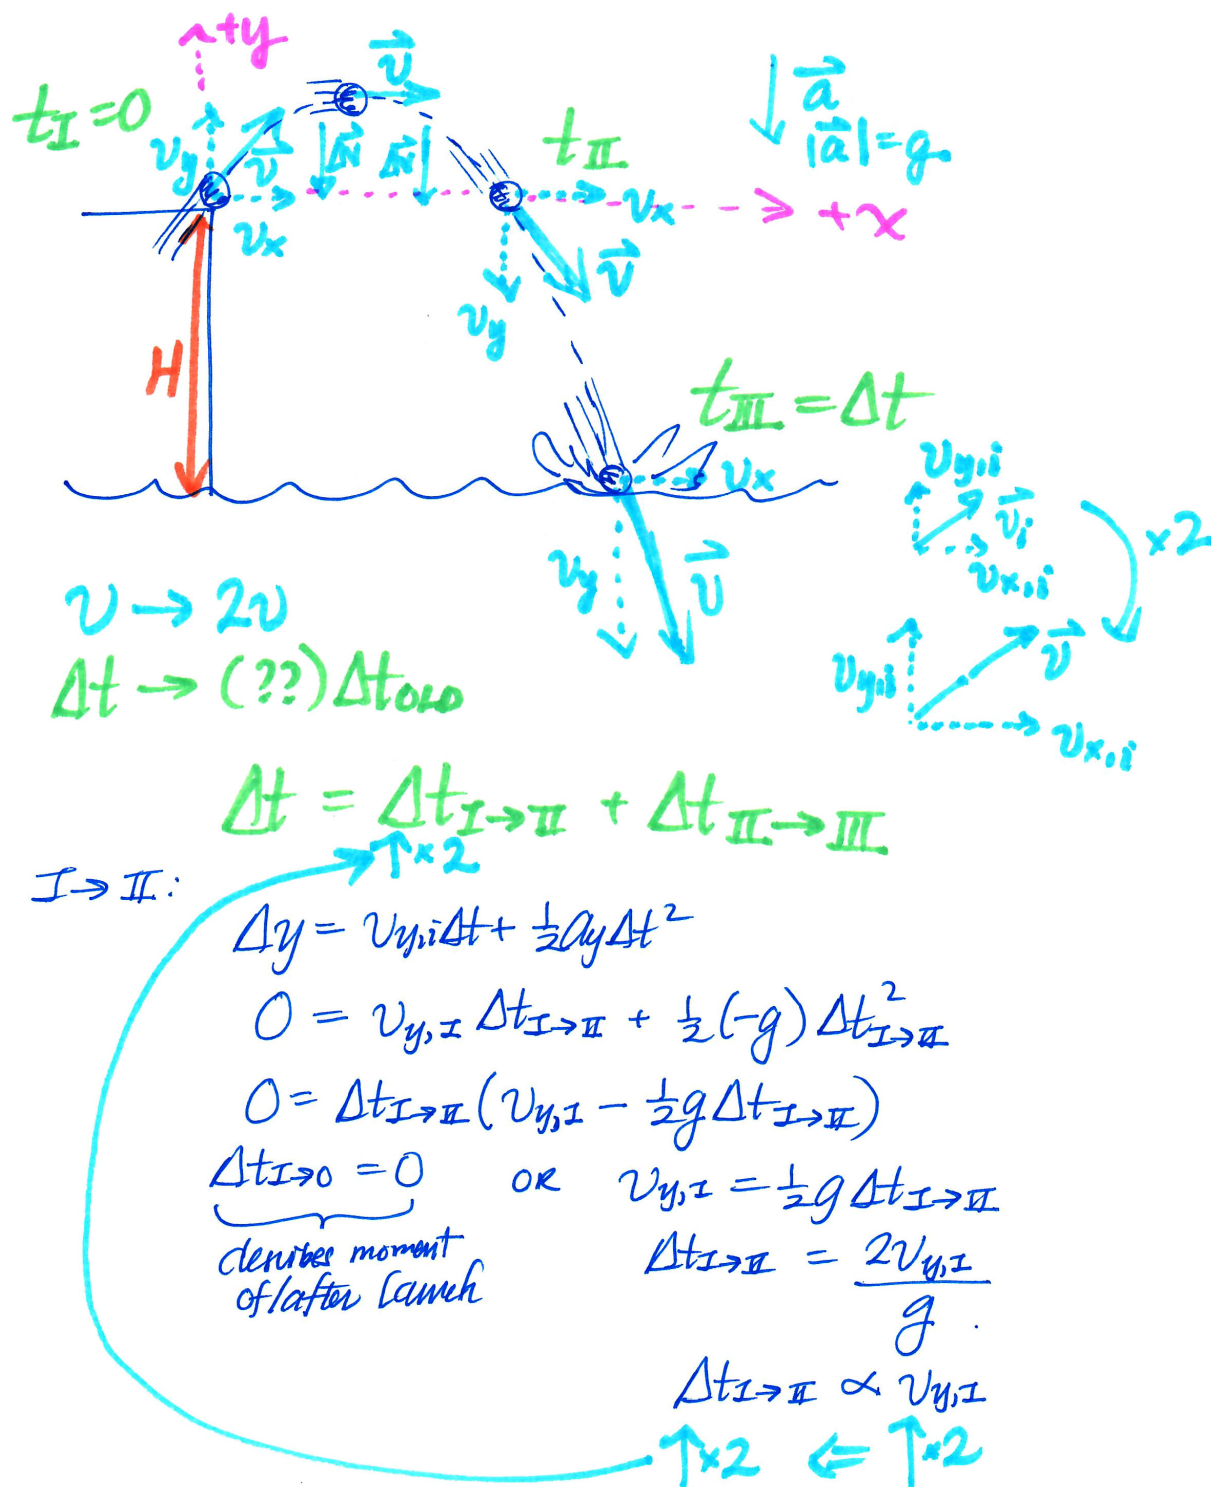 +y
v⃗
t_I = 0
v_y
v⃗
Δv⃗
Δv⃗
t_II
a⃗
|a⃗| = g
v_x
v_x
+x
v⃗
v_y
H
t_III = Δt
v_x
v_y
v⃗
v_y,i
v⃗_i
v_x,i
×2
v_y,i
v⃗
v_x,i
v → 2v
Δt → (??)Δt_OLD
Δt = Δt_I→II + Δt_II→III
↑×2
I→II:
Δy = v_y,iΔt + ½a_yΔt²
0 = v_y,I Δt_I→II + ½(-g)Δt²_I→II
0 = Δt_I→II(v_y,I - ½gΔt_I→II)
Δt_I→0 = 0 OR v_y,I = ½gΔt_I→II
moment
of/after launch
Δt_I→II = 2v_y,I / g.
Δt_I→II ∝ v_y,I
↑×2 ⇐ ↑×2